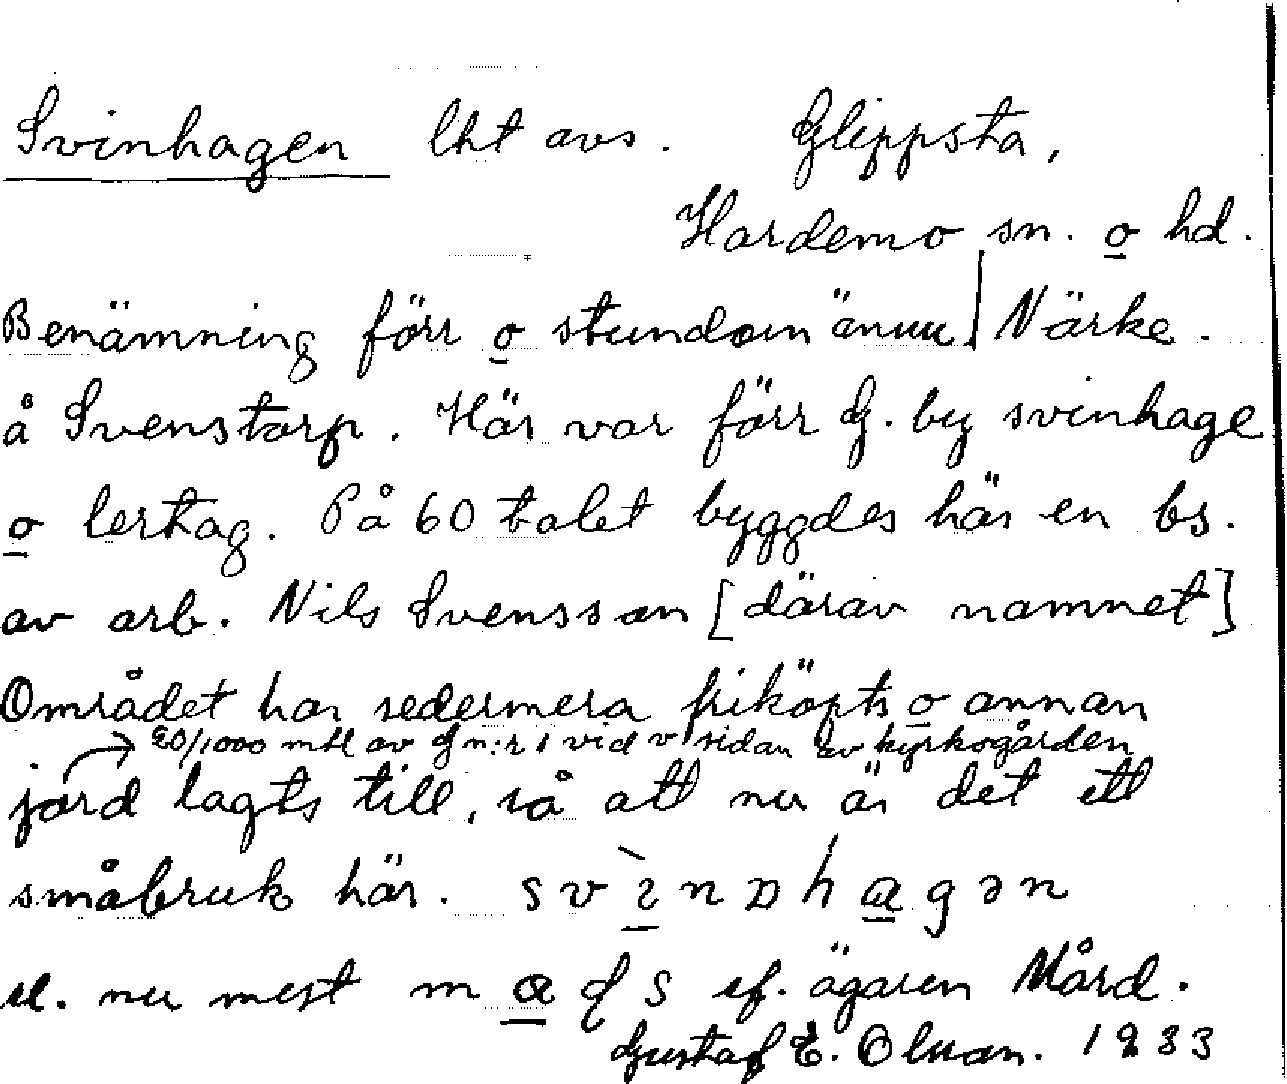 Svinhagen lht avs. Glippsta,
Hardemo sn. o hd.
Benämning förr o stundom ännu. Närke.
å Svenstorp. Här var förr G. by svinhage
o lertag. På 60 talet byggdes här en bs.
av arb. Nils Svensson [därav namnet]
Området har sedermera friköpts o annan
20/1000 mtl av G n:r 1 vid v sidan av kyrkogården
jord lagts till, så att nu är det ett
småbruk här.
el. nu mest ef. ägaren Mård.
Gustaf E. Olsson. 1933